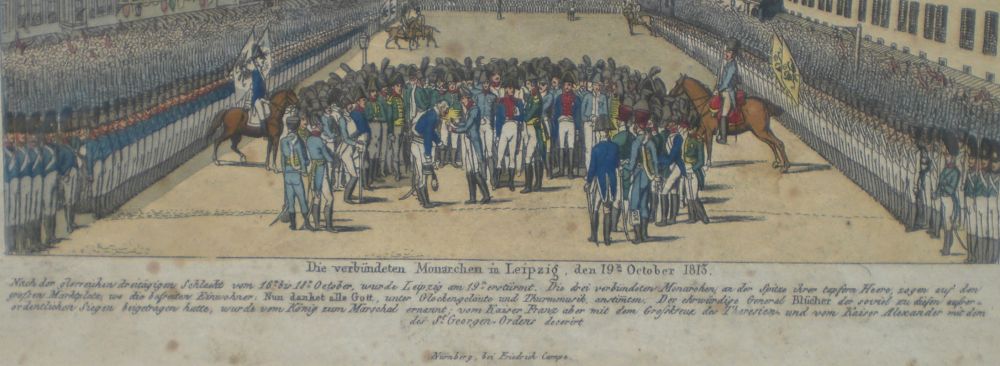 Die verbündeten Monarchen in Leipzig, den 19ten October 1813.
Nach der glorreichen dreitägigen Schlacht vom 16ten bis 18ten October, wurde Leipzig am 19ten erstürmt. Die drei verbündeten Monarchen, an der Spitze ihrer tapfern Heere, zogen auf den
großen Marktplatz, wo die befreiten Einwohner: Nun danket alle Gott, unter Glockengeläute und Thurmmusik, anstimten. Der ehrwürdige General Blücher der soviel zu diesen außer-
ordentlichen Siegen beigetragen hatte, wurde vom König zum Marschal ernannt; vom Kaiser Franz aber mit dem Großkreuz des Theresien- und vom Kaiser Alexander mit dem
des St. Georgen-Ordens decorirt.
Nürnberg, bei Friedrich Campe.